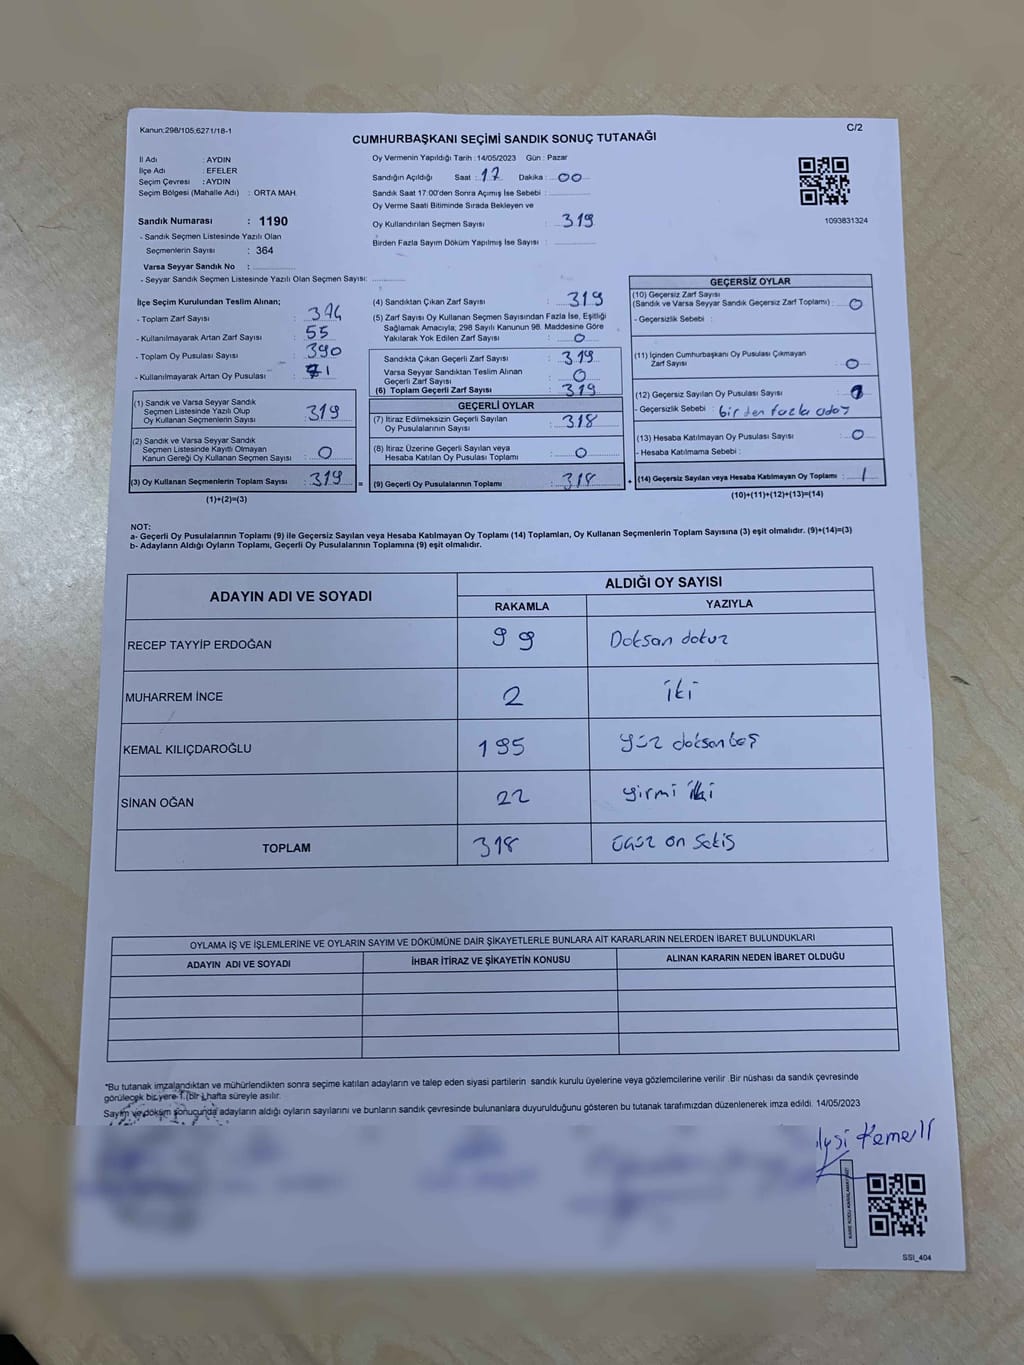 Kanun:298/105;6271/18-1
C/2
CUMHURBAŞKANI SEÇİMİ SANDIK SONUÇ TUTANAĞI
İl Adı : AYDIN
İlçe Adı : EFELER
Seçim Çevresi : AYDIN
Seçim Bölgesi (Mahalle Adı) : ORTA MAH.
Sandık Numarası : 1190
- Sandık Seçmen Listesinde Yazılı Olan
Seçmenlerin Sayısı : 364
Varsa Seyyar Sandık No :
- Seyyar Sandık Seçmen Listesinde Yazılı Olan Seçmen Sayısı:
Oy Vermenin Yapıldığı Tarih : 14/05/2023 Gün : Pazar
Sandığın Açıldığı Saat : 17 Dakika : 00
Sandık Saat 17:00'den Sonra Açımış İse Sebebi :
Oy Verme Saati Bitiminde Sırada Bekleyen ve
Oy Kullandırılan Seçmen Sayısı : 319
Birden Fazla Sayım Döküm Yapılmış İse Sayısı :
1093831324
İlçe Seçim Kurulundan Teslim Alınan;
- Toplam Zarf Sayısı : 374
- Kullanılmayarak Artan Zarf Sayısı : 55
- Toplam Oy Pusulası Sayısı : 390
- Kullanılmayarak Artan Oy Pusulası : 71
(1) Sandık ve Varsa Seyyar Sandık
Seçmen Listesinde Yazılı Olup
Oy Kullanan Seçmenlerin Sayısı : 319
(2) Sandık ve Varsa Seyyar Sandık
Seçmen Listesinde Kayıtlı Olmayan
Kanun Gereği Oy Kullanan Seçmen Sayısı : 0
(3) Oy Kullanan Seçmenlerin Toplam Sayısı : 319 =
(1)+(2)=(3)
(4) Sandıktan Çıkan Zarf Sayısı : 319
(5) Zarf Sayısı Oy Kullanan Seçmen Sayısından Fazla İse, Eşitliği
Sağlamak Amacıyla; 298 Sayılı Kanunun 98. Maddesine Göre
Yakılarak Yok Edilen Zarf Sayısı : 0
Sandıkta Çıkan Geçerli Zarf Sayısı : 319
Varsa Seyyar Sandıktan Teslim Alınan
Geçerli Zarf Sayısı : 0
(6) Toplam Geçerli Zarf Sayısı : 319
GEÇERLİ OYLAR
(7) İtiraz Edilmeksizin Geçerli Sayılan
Oy Pusulalarının Sayısı : 318
(8) İtiraz Üzerine Geçerli Sayılan veya
Hesaba Katılan Oy Pusulası Toplamı : 0
(9) Geçerli Oy Pusulalarının Toplamı : 318 +
GEÇERSİZ OYLAR
(10) Geçersiz Zarf Sayısı
(Sandık ve Varsa Seyyar Sandık Geçersiz Zarf Toplamı) : 0
- Geçersizlik Sebebi :
(11) İçinden Cumhurbaşkanı Oy Pusulası Çıkmayan
Zarf Sayısı : 0
(12) Geçersiz Sayılan Oy Pusulası Sayısı : 1
- Geçersizlik Sebebi : birden fazla aday
(13) Hesaba Katılmayan Oy Pusulası Sayısı : 0
- Hesaba Katılmama Sebebi :
(14) Geçersiz Sayılan veya Hesaba Katılmayan Oy Toplamı : 1
(10)+(11)+(12)+(13)=(14)
NOT:
a- Geçerli Oy Pusulalarının Toplamı (9) ile Geçersiz Sayılan veya Hesaba Katılmayan Oy Toplamı (14) Toplamları, Oy Kullanan Seçmenlerin Toplam Sayısına (3) eşit olmalıdır. (9)+(14)=(3)
b- Adayların Aldığı Oyların Toplamı, Geçerli Oy Pusulalarının Toplamına (9) eşit olmalıdır.
ADAYIN ADI VE SOYADI
ALDIĞI OY SAYISI
RAKAMLA YAZIYLA
RECEP TAYYİP ERDOĞAN 99 Doksan dokuz
MUHARREM İNCE 2 iki
KEMAL KILIÇDAROĞLU 195 yüz doksan beş
SİNAN OĞAN 22 yirmi iki
TOPLAM 318 üçüz on sekiz
OYLAMA İŞ VE İŞLEMLERİNE VE OYLARIN SAYIM VE DÖKÜMÜNE DAİR ŞİKAYETLERLE BUNLARA AİT KARARLARIN NELERDEN İBARET BULUNDUKLARI
ADAYIN ADI VE SOYADI İHBAR İTİRAZ VE ŞİKAYETİN KONUSU ALINAN KARARIN NEDEN İBARET OLDUĞU
*Bu tutanak imzalandıktan ve mühürlendikten sonra seçime katılan adayların ve talep eden siyasi partilerin sandık kurulu üyelerine veya gözlemcilerine verilir. Bir nüshası da sandık çevresinde
görülecek bir yere 1 (bir) hafta süreyle asılır.
Sayım ve döküm sonucunda adayların aldığı oyların sayılarını ve bunların sandık çevresinde bulunanlara duyurulduğunu gösteren bu tutanak tarafımızdan düzenlenerek imza edildi. 14/05/2023
SSI_404